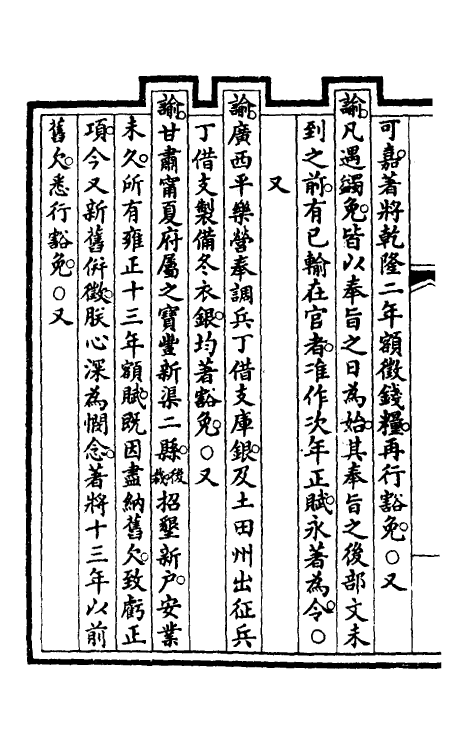 可嘉著將乾隆二年額徵錢糧再行豁免○又
諭凡遇蠲免皆以奉旨之日為始其奉旨之後部文未
到之前有已輸在官者准作次年正賦永著為令○
又
諭廣西平樂營奉調兵丁借支庫銀及土田州出征兵
丁借支製備冬衣銀均著豁免○又
諭甘肅甯夏府屬之寶豐新渠二縣後裁招墾新户安業
未久所有雍正十三年額賦既因盡納舊欠致虧正
項今又新舊併徵朕心深為憫念著將十三年以前
舊欠悉行豁免○又